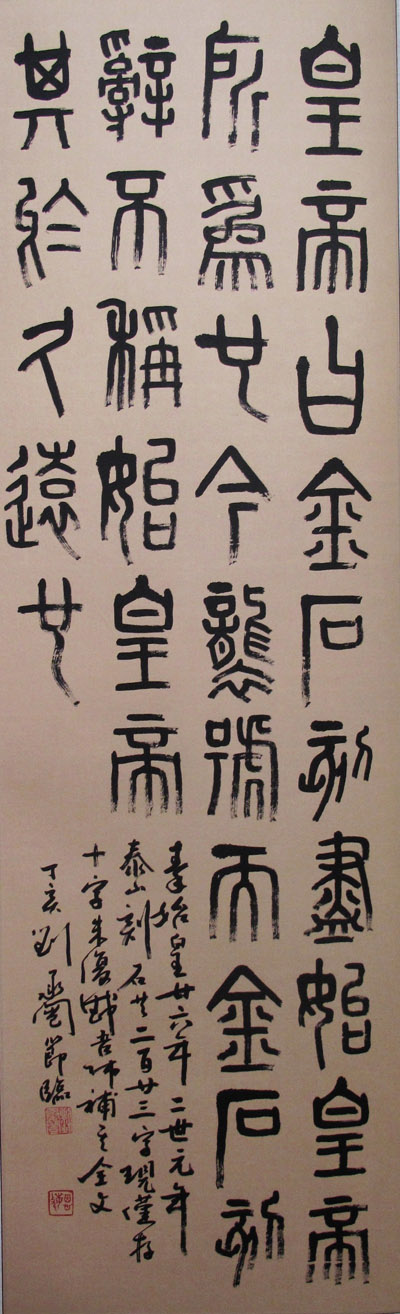 皇帝曰金石刻盡始皇帝
所爲也今襲號而金石刻
辭不稱始皇帝
其於久遠也
秦始皇廿六年二世元年
泰山刻石共二百廿三字現僅存
十字朱復戡老師補全文
丁亥劉節臨